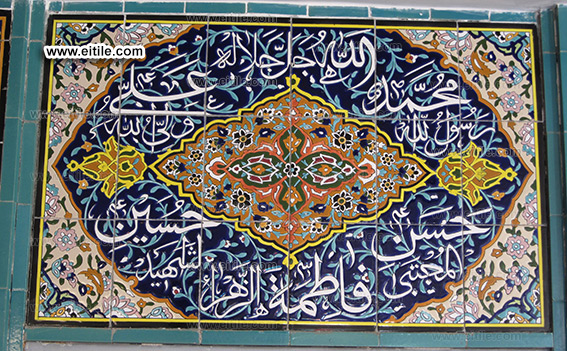 www.eitile.com
الله جل جلاله
محمد
رسول الله
علی
ولی الله
حسن
المجتبی
حسین
الشهید
فاطمة الزهرا